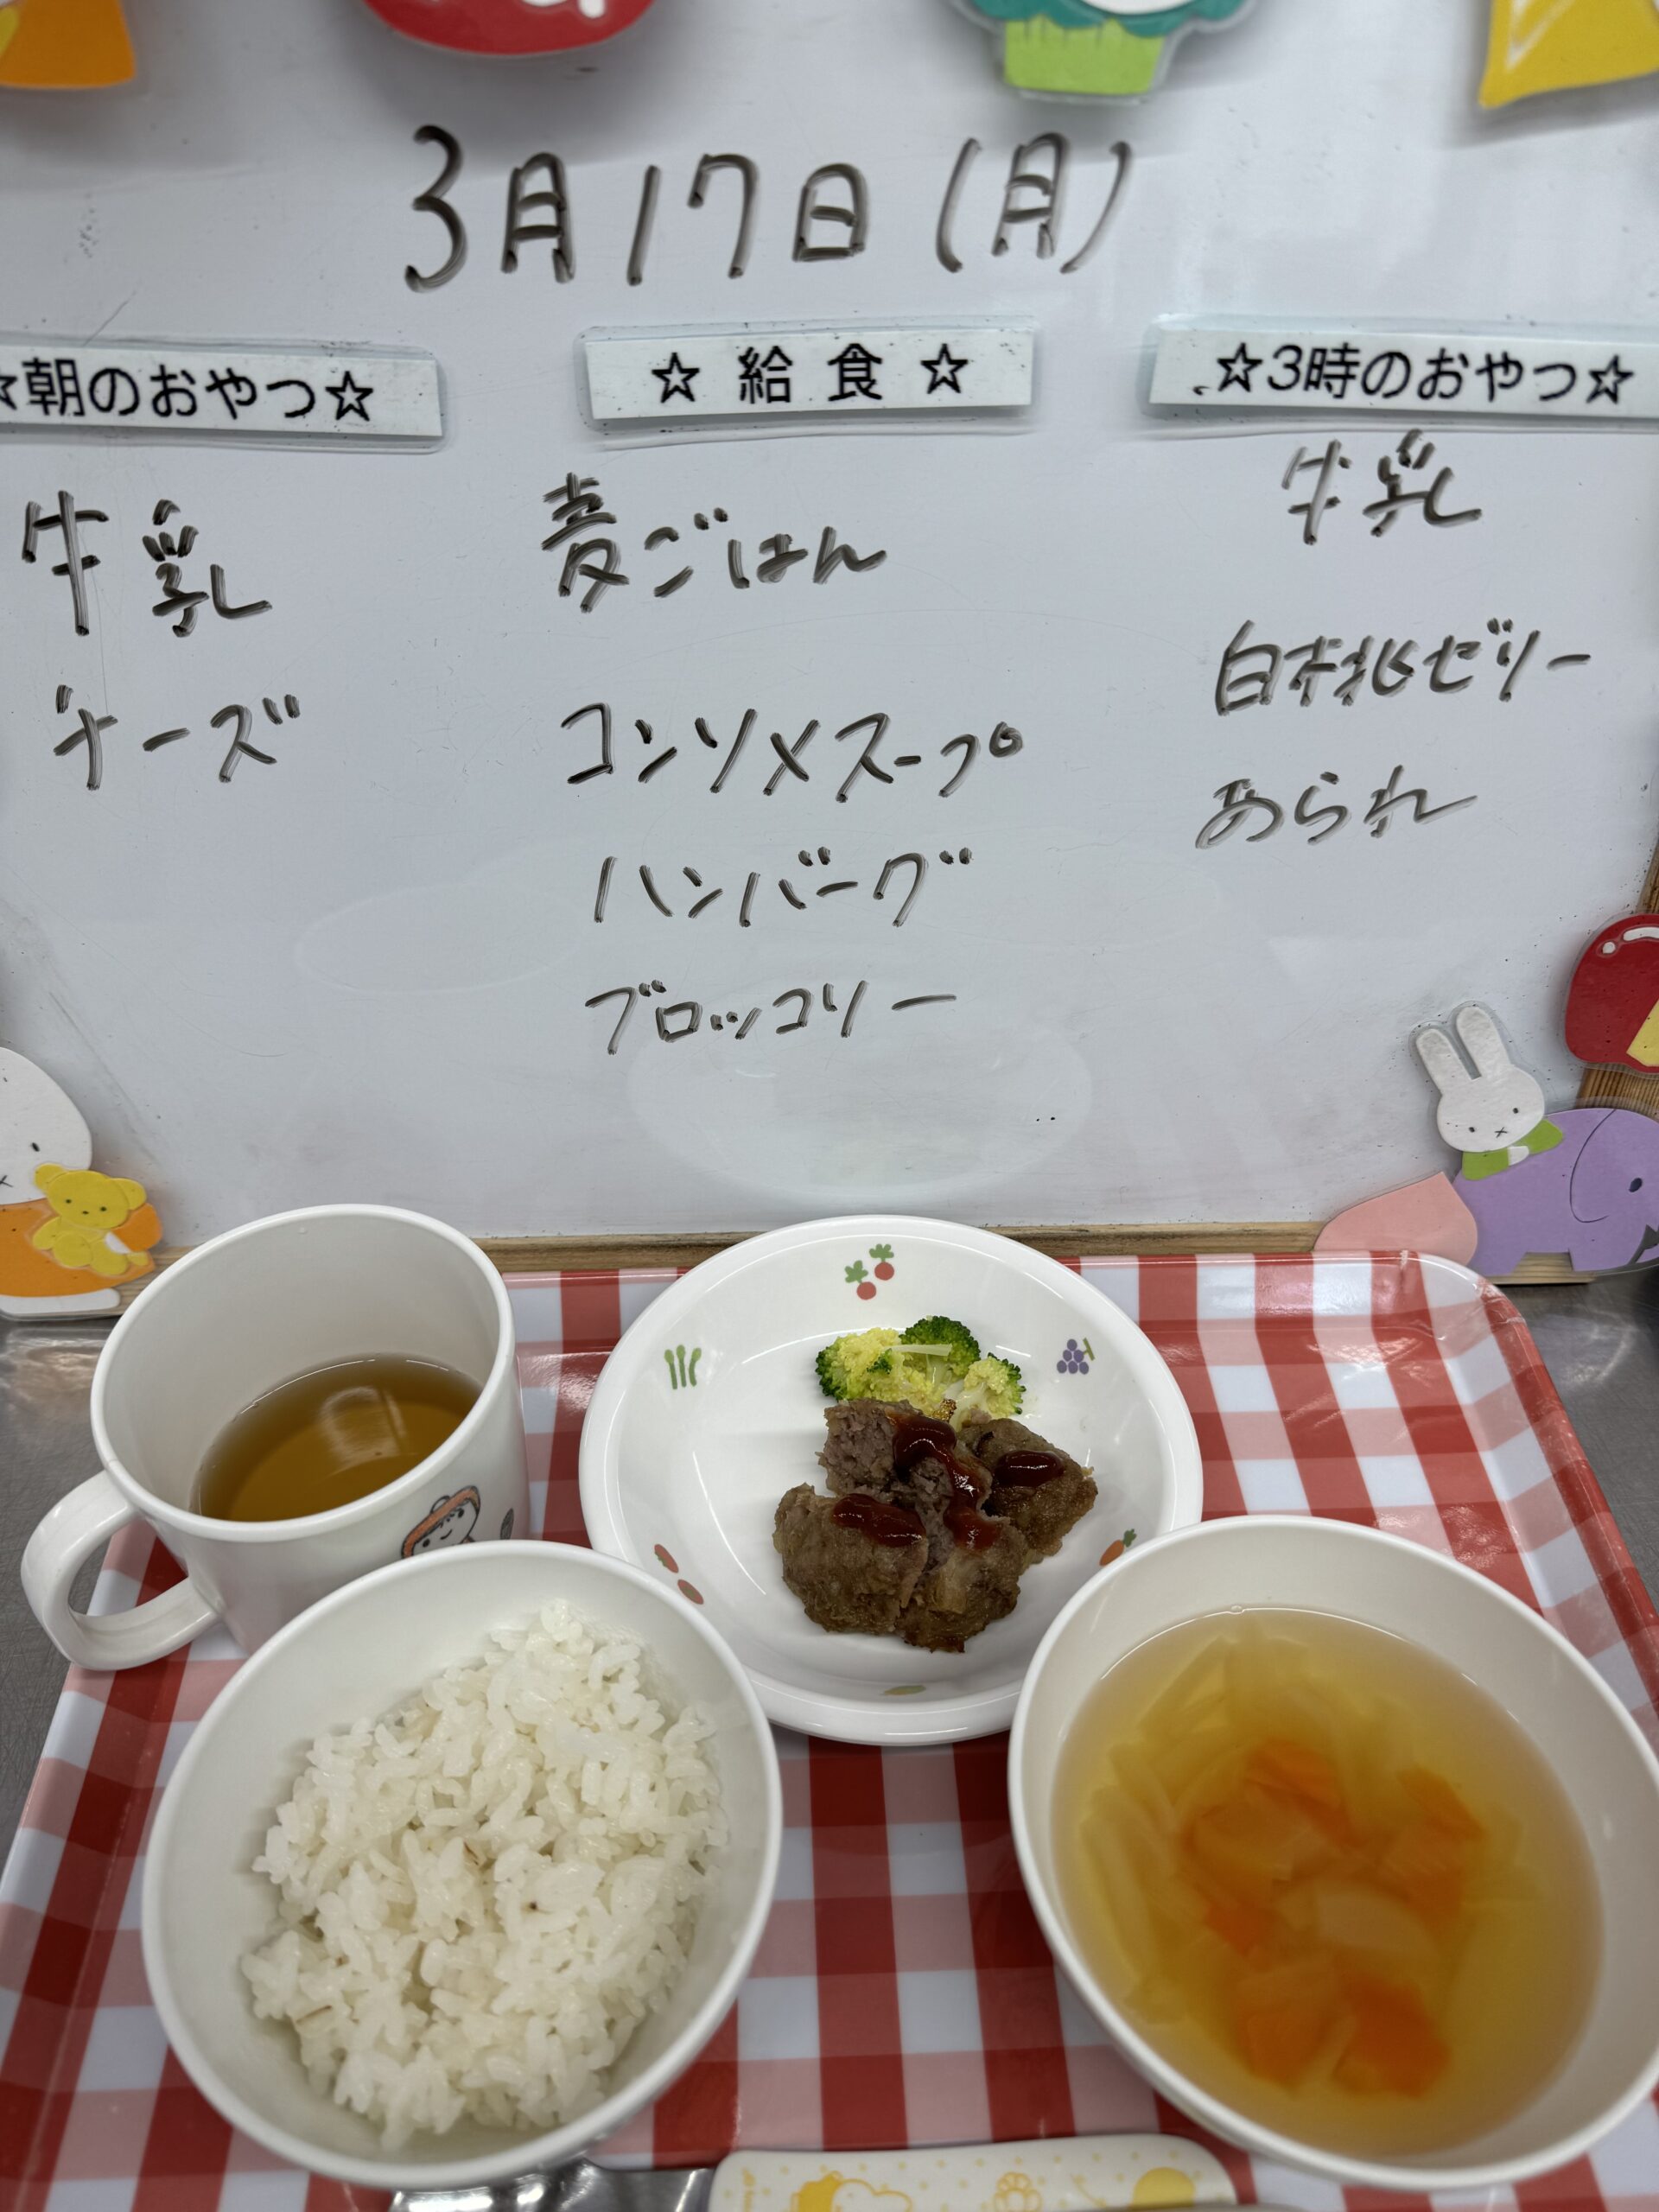 3月17日(月)
☆朝のおやつ☆
牛乳
チーズ
☆ 給 食 ☆
麦ごはん
コンソメスープ
ハンバーグ
ブロッコリー
☆3時のおやつ☆
牛乳
白桃ゼリー
あられ